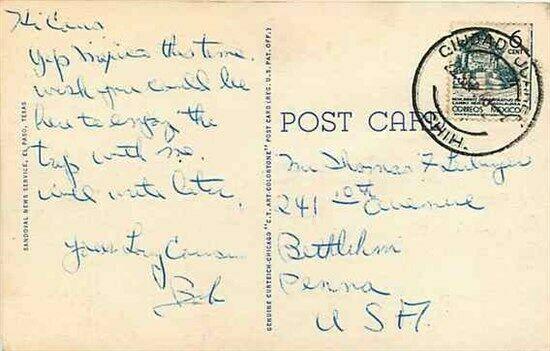 Hi
Yep Mexico this time.
wish you could be
here to enjoy the
trip with me.
will write later.
Your Cousin
Bob
SANDOVAL NEWS SERVICE, EL PASO, TEXAS
GENUINE CURTEICH-CHICAGO "C.T. ART-COLORTONE" POST CARD (REG. U.S. PAT. OFF.)
POST CARD
6
CENT
CIUDAD JUAREZ
CHIH
CORREOS MEXICO
Mr Thomas F
241 10th Avenue
Bethlehm
Penna
USA.